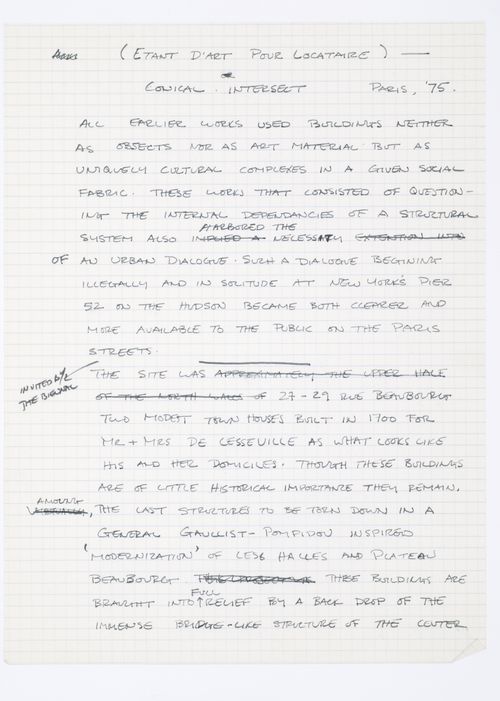 (ETANT D'ART POUR LOCATAIRE) —
CONICAL · INTERSECT PARIS, '75.
ALL EARLIER WORKS USED BUILDINGS NEITHER
AS OBJECTS NOR AS ART MATERIAL BUT AS
UNIQUELY CULTURAL COMPLEXES IN A GIVEN SOCIAL
FABRIC. THESE WORKS THAT CONSISTED OF QUESTION-
ING THE INTERNAL DEPENDANCIES OF A STRUCTURAL
HARBORED THE
SYSTEM ALSO IMPLIED A NECESSATY EXTENTION INTO
OF AN URBAN DIALOGUE. SUCH A DIALOGUE BEGINING
ILLEGALLY AND IN SOLITUDE AT NEW YORK'S PIER
52 ON THE HUDSON BECAME BOTH CLEARER AND
MORE AVAILABLE TO THE PUBLIC ON THE PARIS
STREETS.
INVITED BY
THE BIENNAL
THE SITE WAS APPROXIMATELY THE UPPER HALF
OF THE NORTH WALLS OF 27-29 RUE BEAUBOURG
TWO MODEST TOWN HOUSES BUILT IN 1700 FOR
MR + MRS DE LESSEVILLE AS WHAT LOOKS LIKE
HIS AND HER DOMICILES. THOUGH THESE BUILDINGS
ARE OF LITTLE HISTORICAL IMPORTANCE THEY REMAIN,
AMOUNT
THE LAST STRUCTURES TO BE TORN DOWN IN A
GENERAL GAULLIST-POMPIDOU INSPIRED
'MODERNIZATION' OF LES HALLES AND PLATEAU
BEAUBOURG. THESE BUILDINGS ARE
FULL
BRAUGHT INTO↑RELIEF BY A BACK DROP OF THE
IMMENSE BRIDGE-LIKE STRUCTURE OF THE CENTER